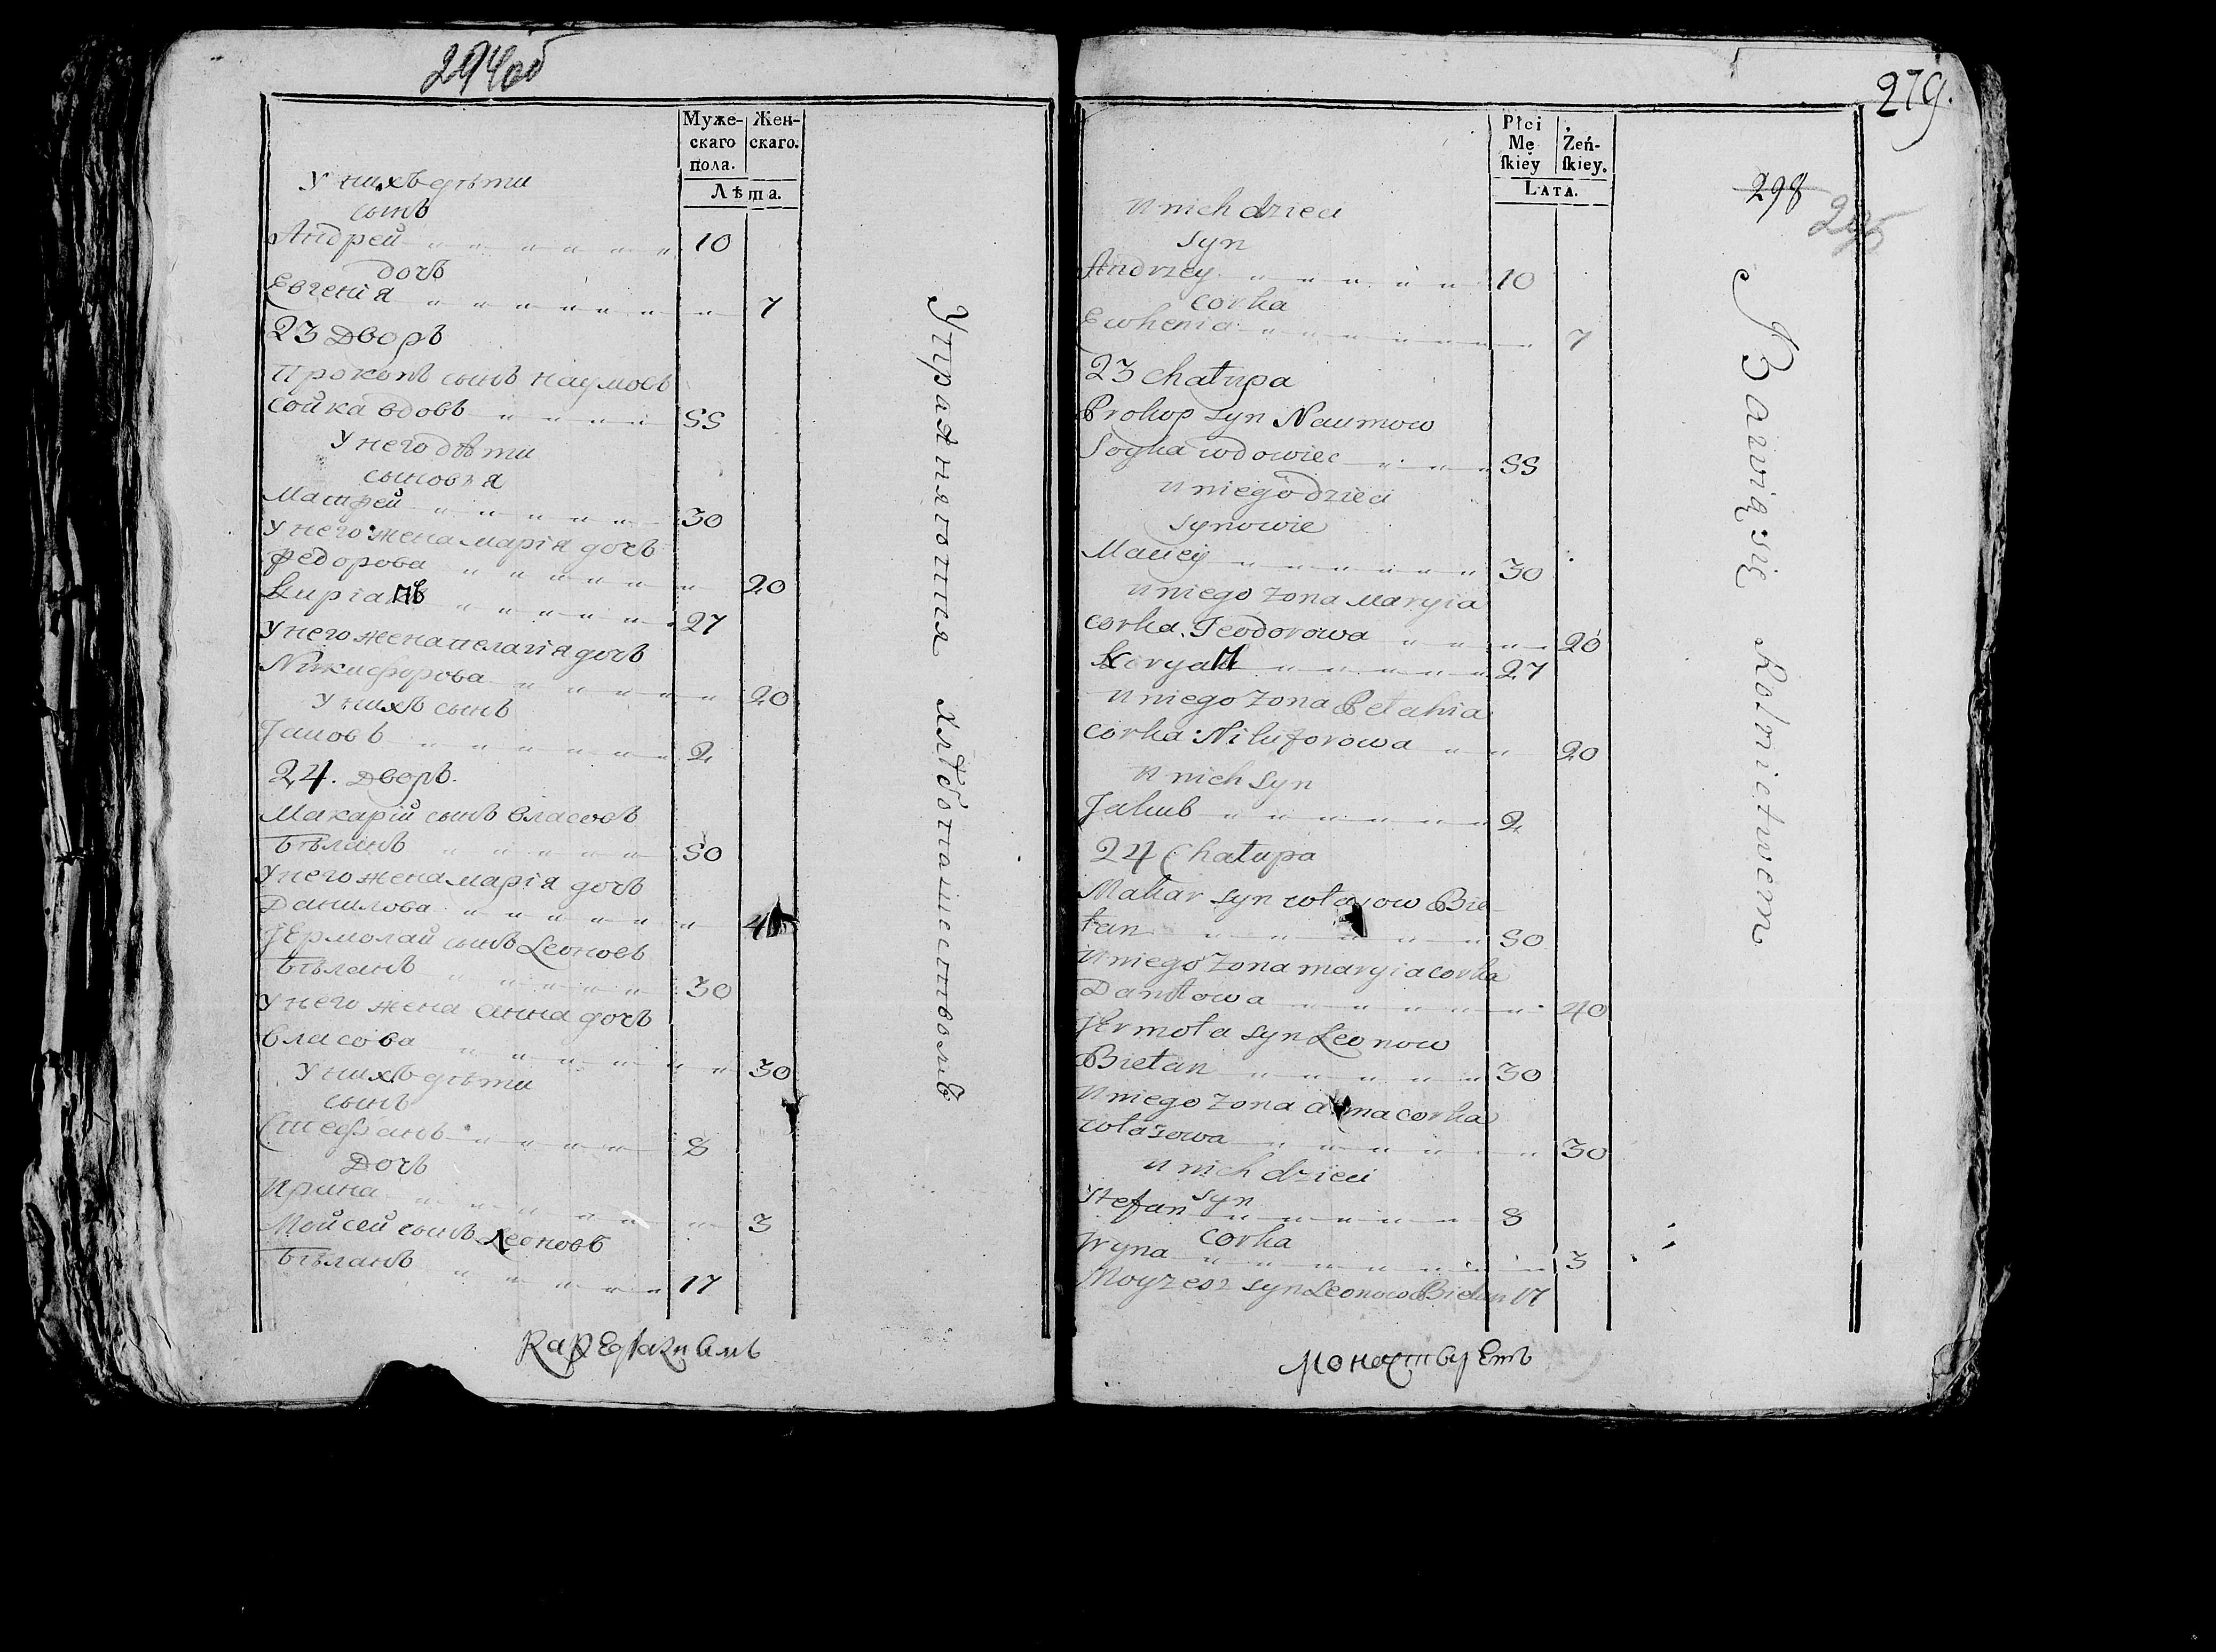 294об
Муже-
скаго
пола.
Жен-
скаго.
Лѣта.
У нихъ дѣти
сынъ
Андрей 10
дочь
Евгенія 7
23 Дворъ
Прокопъ сынъ Наумовъ
Сойка вдовъ 55
У него дѣти
сыновья
Матфей 30
У него жена Марія дочь
Федорова 20
27
У него жена Пелагія дочь
Никифорова 20
У нихъ сынъ
Яковъ 2
24. Дворъ.
Макарій сынъ Власовъ
Бѣланъ 50
У него жена Марія дочь
Данилова
Ермолай сынъ Леоновъ
Бѣланъ 30
У него жена Анна дочь
Власова 30
У нихъ дѣти
сынъ
Стефанъ 8
Дочь
Ирина 3
Мойсей сынъ Леоновъ
Бѣланъ 17
Упражняются хлѣбопашествомъ
279.
298
Płci
Mę
ſkiey
Żeń-
ſkiey.
LATA.
U nich dzieci
syn
Andrzey 10
corka
Ewhenia 7
23 Chałupa
Prokop syn Naumow
Soyka wdowiec 55
U niego dzieci
synowie
Maciey 30
U niego żona Maryia
corka Teodorowa 20
27
U niego żona Pelahia
corka Nikiforowa 20
U nich syn
Jakub 2
24 Chałupa
Makar syn Własow Bie-
łan 50
U niego żona Maryia corka
Daniłowa 40
Jermoła syn Leonow
Biełan 30
U niego żona Anna corka
Własowa 30
U nich dzieci
syn
Stefan 8
corka
Iryna 3
Moyzesz syn Leonow Biełan 17
Bawią się Rolnictwem